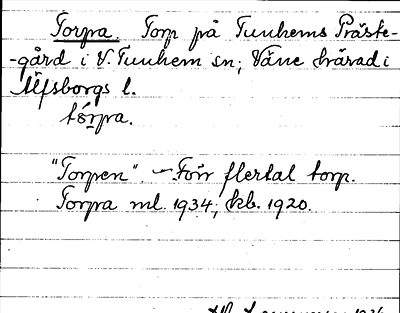 Torpa. Torp på Tunhems Präste-
-gård i V. Tunhem sn; Väne härad i
Älfsborgs l.
tórpa.
"Torpen". - Förr flertal torp.
Torpa ml. 1934; kb. 1920.